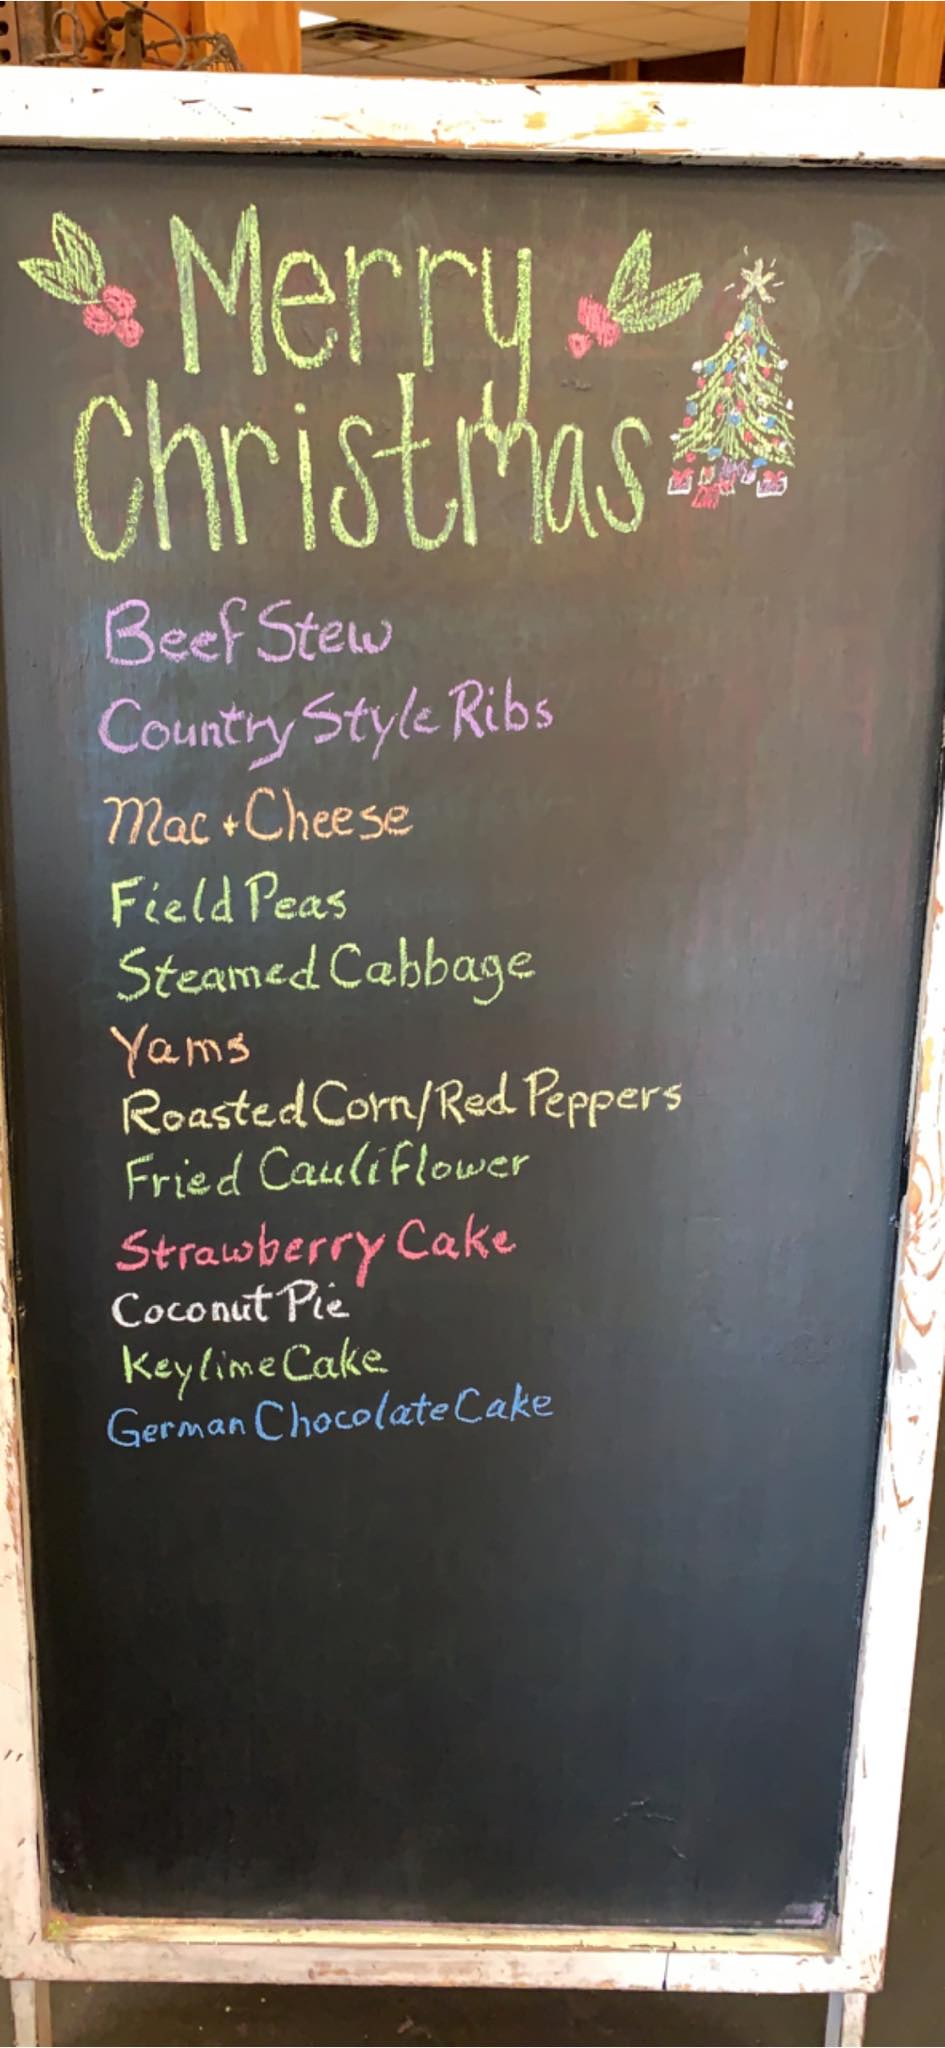 Merry
Christmas
Beef Stew
Country Style Ribs
Mac + Cheese
Field Peas
Steamed Cabbage
Yams
Roasted Corn/Red Peppers
Fried Cauliflower
Strawberry Cake
Coconut Pie
Keylime Cake
German Chocolate Cake